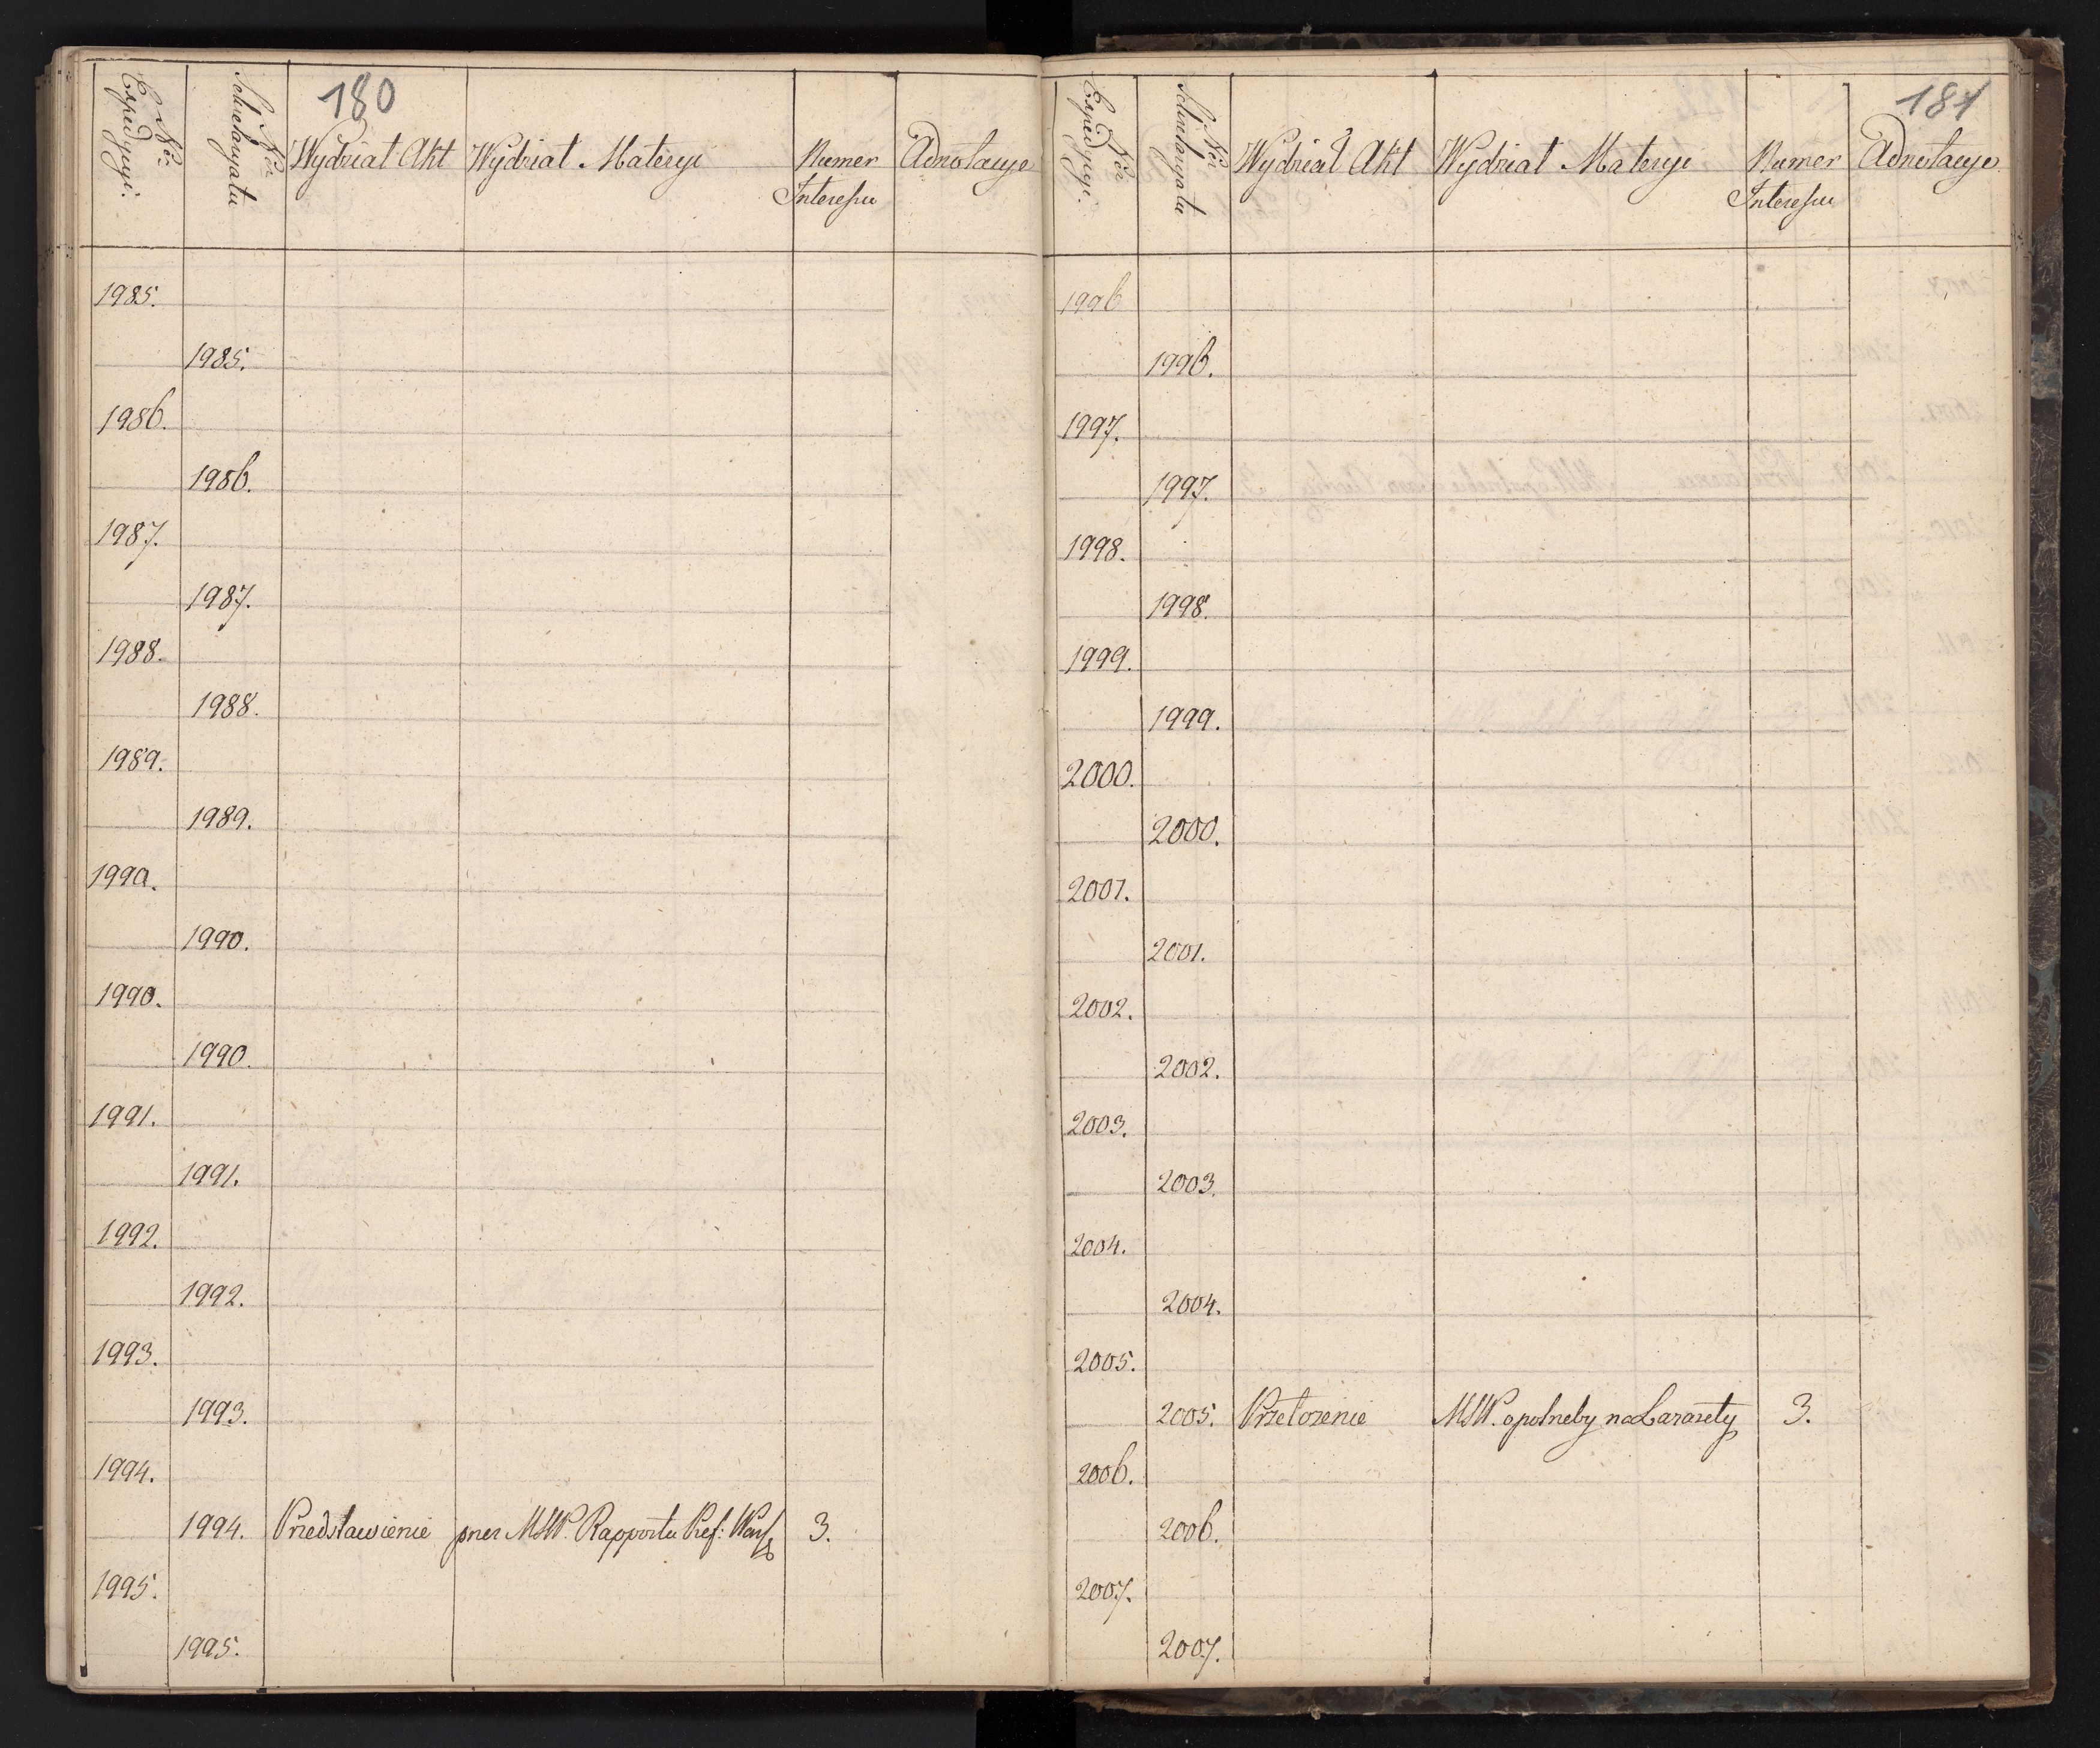 180
Nro Expedycyi.
Nro Sekretaryatu
Wydział Akt
Wydział Materyi
Numer Interessu
Adnotacye
1985.
1985.
1986.
1986.
1987.
1987.
1988.
1988.
1989.
1989.
1990.
1990.
1990.
1990.
1991.
1991.
1992.
1992.
1993.
1993.
1994.
1994. Przedstawienie przez MSW. Rapportu Pref: Warsz 3.
1995.
1995.
181
Nro Expedycyi.
Nro Sekretaryatu
Wydział Akt
Wydział Materyi
Numer Interessu
Adnotacye
1996
1996.
1997.
1997.
1998.
1998.
1999.
1999.
2000.
2000.
2001.
2001.
2002.
2002.
2003.
2003.
2004.
2004.
2005.
2005. Przełożenie MSW. o potrzeby na Lazarety 3.
2006.
2006.
2007.
2007.